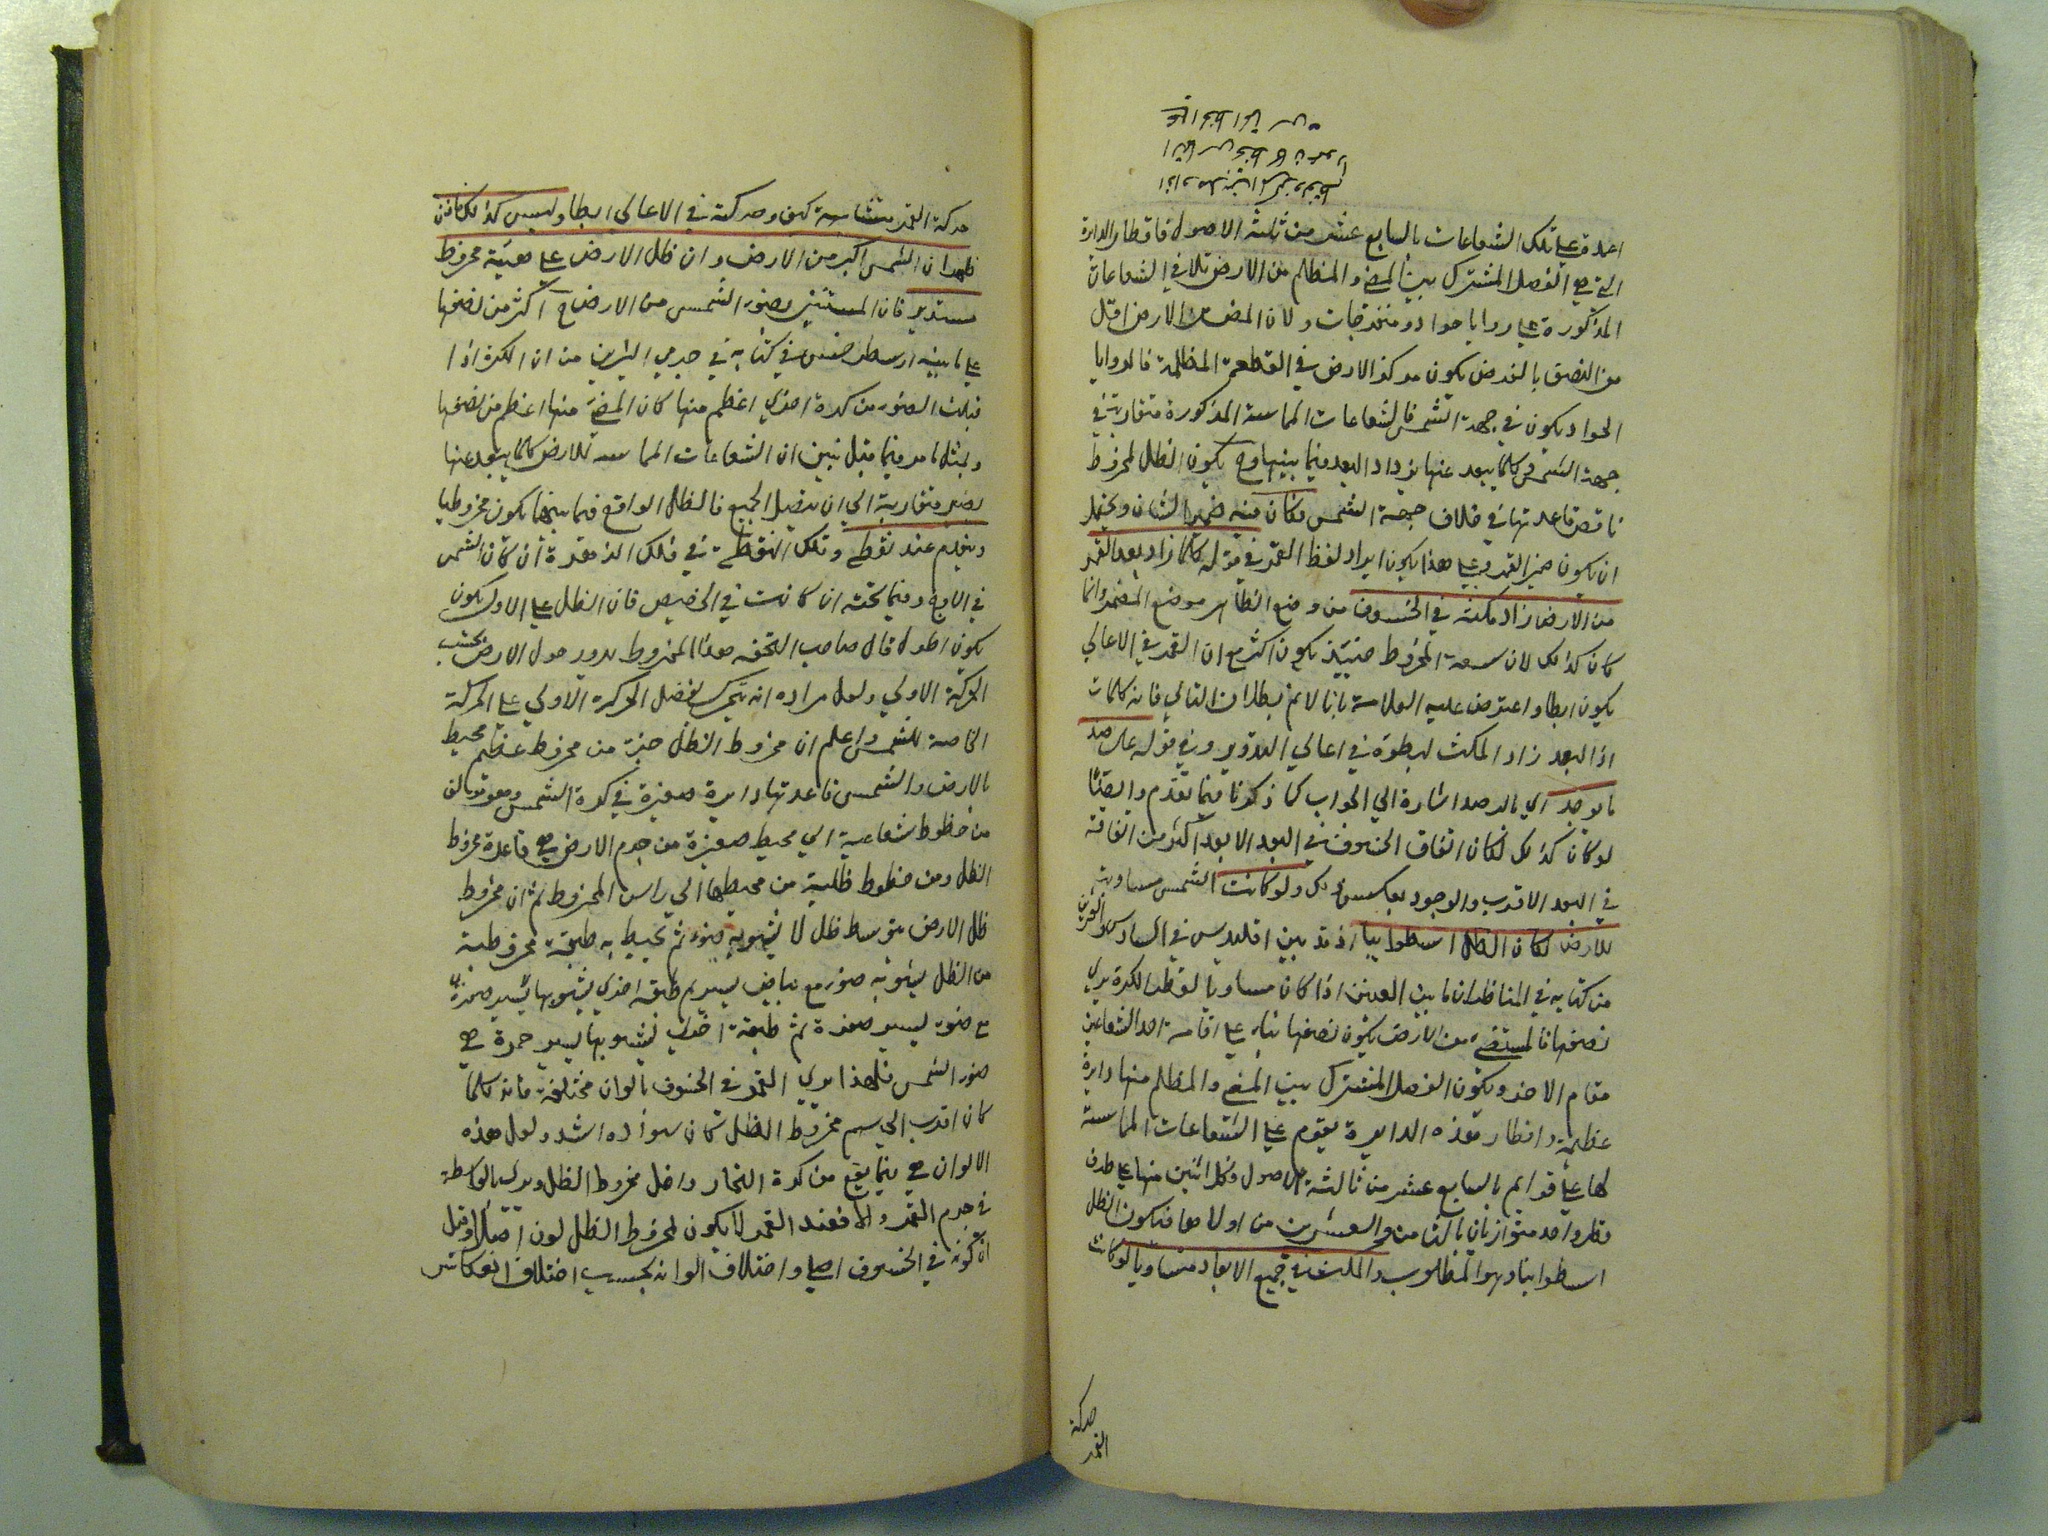 اعمدة على تلك الشعاعات بالسابع عشر من ثالثة الاصول فاقطار الدايرة
التي هي الفصل المشترك بين المضئ والمظلم من الارض تلاقي الشعاعات
المذكورة على زوايا حواد ومنفرجات ولان المضئ من الارض اقل
من النصف بالفرض يكون مركز الارض في القطعة المظلمة فالزوايا
الحواد يكون في جهة الشمس فالشعاعات المماسة المذكورة متقاربة في
جهة الشمس كلما يبعد عنها يزداد البعد فيما بينها وح يكون الظل لمخروط
ناقص قاعدتها في خلاف جهة الشمس فكان فيه ضمير الشان ويحتمل
ان يكون ضمير القمر وعلى هذا يكون ايراد لفظ القمر في قوله كلما زاد بعد القمر
من الارض زاد مكثه في الخسوف من وضع الظاهر موضع المضمر وانما
كان كذلك لان سعة المخروط حينئذ يكون اكثر مع ان القمر في الاعالي
يكون ابطا واعترض عليه العلامة بانا لا نم بطلان التالي فانه كلما
اذا البعد زاد المكث لبطؤه في اعالي التدوير وفي قوله على ضد
ما يوجد اي بالرصد اشارة الي الجواب كما ذكرنا فيما تقدم وايضا
لو كان كذلك لكان اتفاق الخسوف في البعد الابعد اكثر من اتفاقه
في البعد الاقرب والوجود بعكس ذلك ولو كانت الشمس مساوية
للارض لكان الظل اسطوانيا اذ قد بين اقليدس في السادس والعشرين
من كتابه في المناظر ان ما بين العينين اذا كان مساويا لقطر الكرة يري
نصفها فالمستضئ من الارض يكون نصفها بناء على اقامة احد الشعاعين
مقام الاخر ويكون الفصل المشترك بين المضئ والمظلم منها دايرة
عظيمة واقطار هذه الدايرة يقوم على الشعاعات المماسة
لها على قوايم بالسابع عشر من ثالثة الاصول وكل اثنين منها على طرف
قطر واحد متوازيان بالثامن والعشرين من اولاها فيكون الظل
اسطوانيا وهو المطلوب والمكث في جميع الابعاد متساويا لو كانت
حركة
القمر
حركة القمر متشابهة كيف وحركته في الاعالي ابطا وليس كذلك فاذن
ظهر ان الشمس اكبر من الارض وان ظل الارض على هيئة مخروط
مستدير فان المستنير بضوء الشمس من الارض ح اكثر من نصفها
على ما بينه ارسطرخس في كتابه في جرمي النيرين من ان الكرة اذا
قبلت الضوء من كرة اخري اعظم منها كان المضئ منها اعظم من نصفها
وبمثل ما مر فيما قبل نبين ان الشعاعات المماسة للارض كلما يبعد عنها
يصير متقاربة الي ان يتصل الجميع فالظل الواقع فيما بينها يكون مخروطيا
وينعدم عند نقطة وتلك النقطة في فلك الزهرة ان كان الشمس
في الاوج وفيما تحته ان كانت في الحضيض فان الظل على الاول يكون
يكون اطول قال صاحب التحفه هذا المخروط يدور حول الارض بحسب
الحركة الاولي ولعل مراده انه يتحرك بفضل الحركة الاولي على الحركة
الخاصة للشمس واعلم ان مخروط الظل جزء من مخروط عظيم محيط
بالارض والشمس قاعدتها دايرة صغيرة في كرة الشمس وهو يتالف
من خطوط شعاعية الي محيط صغيرة من جرم الارض هي قاعدة مخروط
الظل ومن خطوط ظلية من محيطها الي راس المخروط ثم ان مخروط
ظل الارض يتوسط ظل لا يشوبه ضوء ثم يحيط به طبقة مخروطية
من الظل يشوبه ضوء مع بياض يسير ثم طبقه اخري يشوبها يسير ضوء
مع ضوء يسير صفرة ثم طبقة اخري يشوبها يسير حمرة هي
ضوء الشمس فلهذا يري القمر في الخسوف بالوان مختلفة فانه كلما
كان اقرب الي سهم مخروط الظل كان سواده اشد ولعل هذه
الالوان هي فيما يقع من كرة البخار داخل مخروط الظل ويري بالواسطة
في جرم القمر والا فعند القمر لا يكون لمخروط الظل لون اصلا وقيل
ان لونه في الخسوف اصلي واختلاف الوانه بحسب اختلاف انعكاس